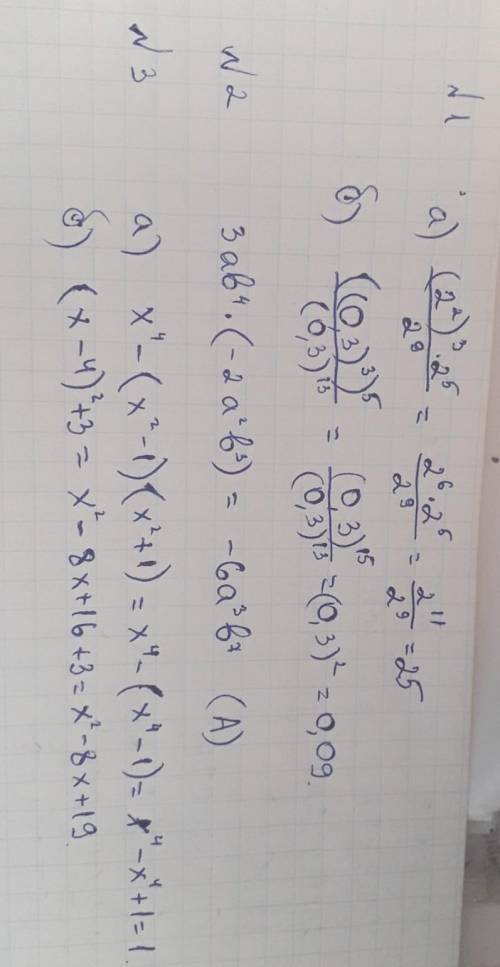 №1 а) (2²)³·2⁵/2⁹ = 2⁶·2⁵/2⁹ = 2¹¹/2⁹ = 25
б) ((0,3)³)⁵/(0,3)¹³ = (0,3)¹⁵/(0,3)¹³ = (0,3)² = 0,09.
№2 3ab⁴·(-2a²b³) = -6a³b⁷ (А)
№3 а) x⁴-(x²-1)(x²+1) = x⁴-(x⁴-1) = x⁴-x⁴+1=1.
б) (x-4)²+3 = x²-8x+16+3 = x²-8x+19.